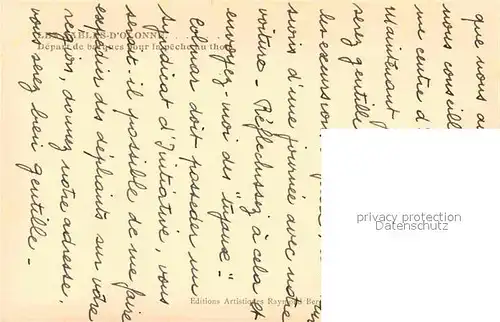 LES SABLES-D'OLONNE
Départ de barques pour la pêche au thon
que nous a
nous conseill
un centre d'
Maintenant
serez gentille
les excursion
sivois d'une journée avec notre
voiture - Réfléchissez à cela et
envoyez-moi des "tuyaux" -
Colmar doit posséder un
Syndicat d'Initiative, vous
serait-il possible de me faire
expédir des dépliants sur votre
région, donnez notre adresse,
vous serez bien gentille -
Editions Artistiques Raymond Ber
privacy protection
Datenschutz